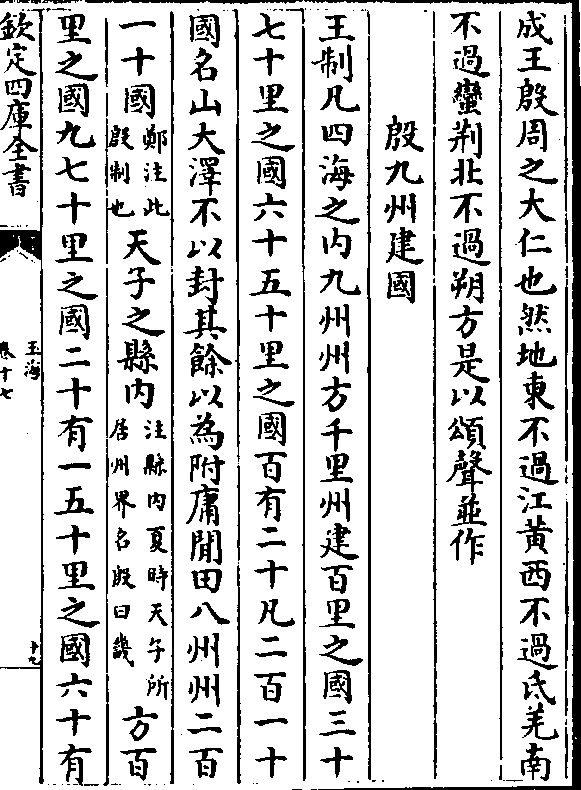 成王殷周之大仁也然地東不過江黃西不過氐羌南
不過蠻荆北不過朔方是以頌聲並作
殷九州建國
王制凡四海之内九州州方千里州建百里之國三十
七十里之國六十五十里之國百有二十凡二百一十
國名山大澤不以封其餘以為附庸閒田八州州二百
一十國鄭注此殷制也天子之縣内注縣内夏時天子所居州界名殷曰畿方百
里之國九七十里之國二十有一五十里之國六十有
欽定四庫全書
玉海
卷十七
十九